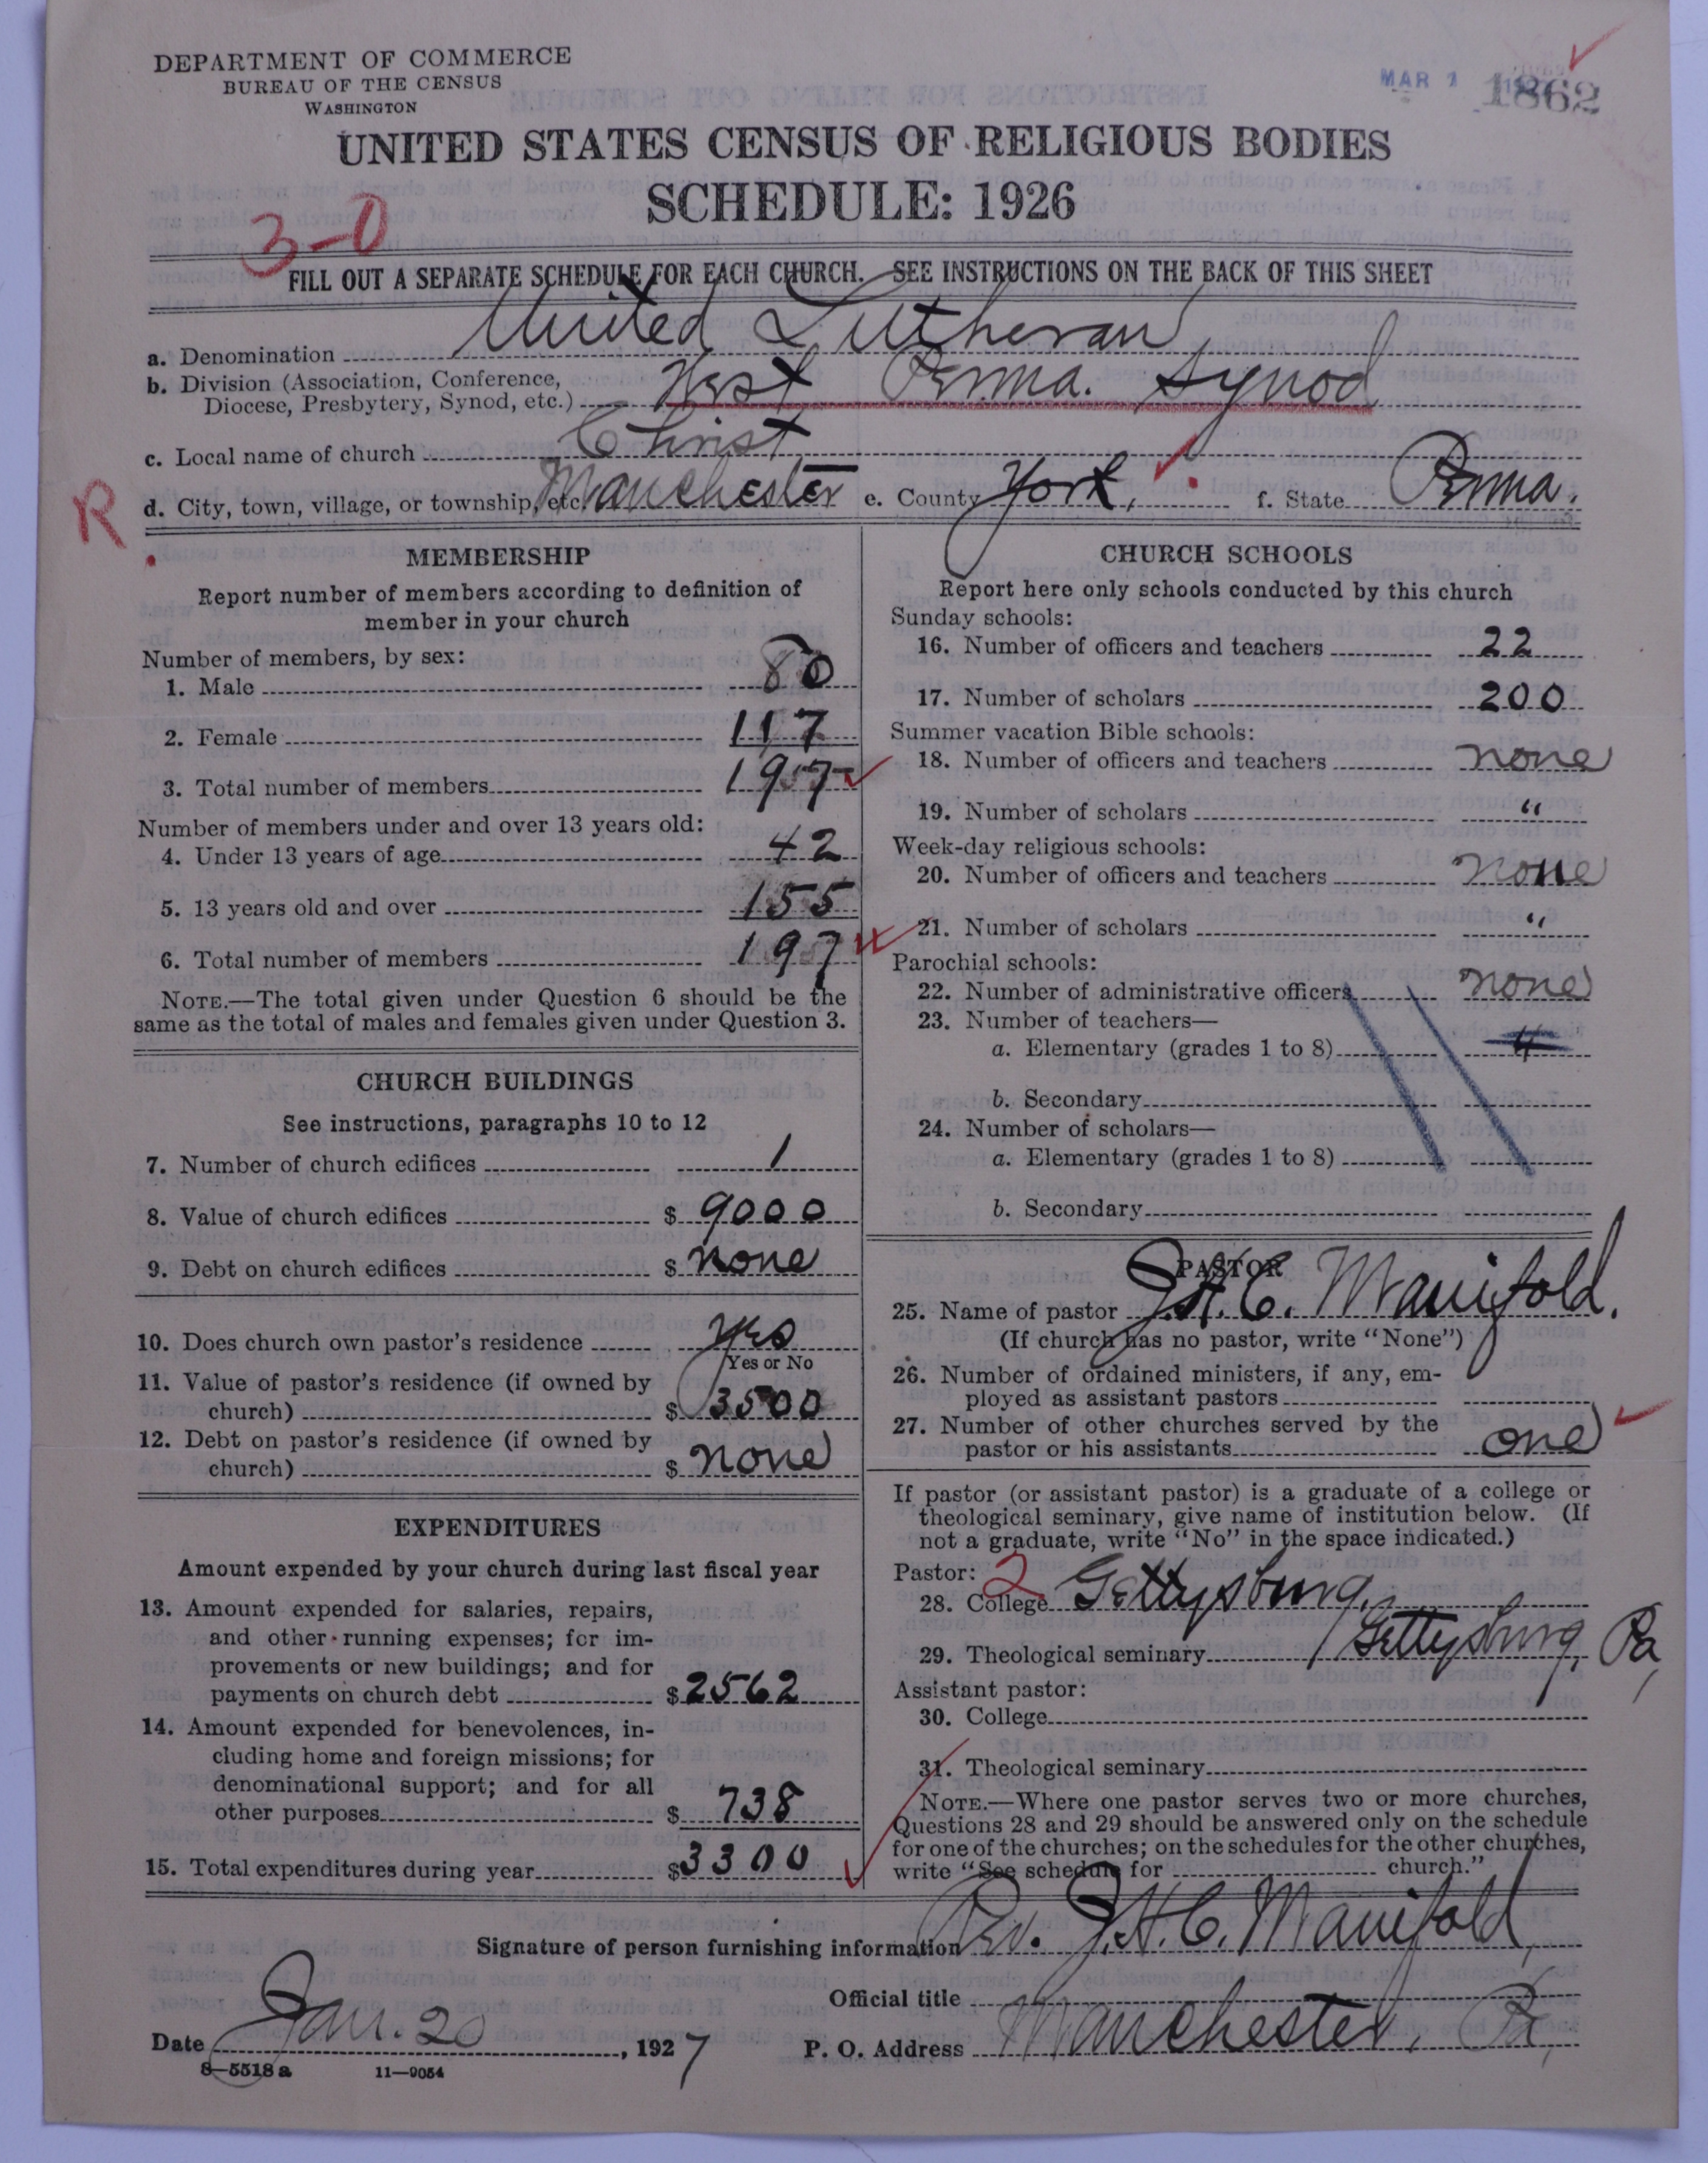 DEPARTMENT OF COMMERCE
BUREAU OF THE CENSUS
WASHINGTON
MAR 1
1862
UNITED STATES CENSUS OF RELIGIOUS BODIES
SCHEDULE: 1926
3-0
FILL OUT A SEPARATE SCHEDULE FOR EACH CHURCH. SEE INSTRUCTIONS ON THE BACK OF THIS SHEET
a. Denomination United Lutheran
b. Division (Association, Conference, Diocese, Presbytery, Synod, etc.) West Penna. Synod
c. Local name of church Christ
R
d. City, town, village, or township, etc. Manchester e. County York, f. State Penna.
MEMBERSHIP
Report number of members according to definition of
member in your church
Number of members, by sex:
1. Male 80
2. Female 117
3. Total number of members 197
Number of members under and over 13 years old:
4. Under 13 years of age 42
5. 13 years old and over 155
6. Total number of members 197
NOTE.—The total given under Question 6 should be the
same as the total of males and females given under Question 3.
CHURCH BUILDINGS
See instructions, paragraphs 10 to 12
7. Number of church edifices 1
8. Value of church edifices $ 9000
9. Debt on church edifices $ none
10. Does church own pastor's residence yes
Yes or No
11. Value of pastor's residence (if owned by
church) $ 3500
12. Debt on pastor's residence (if owned by
church) $ none
EXPENDITURES
Amount expended by your church during last fiscal year
13. Amount expended for salaries, repairs,
and other running expenses; for im-
provements or new buildings; and for
payments on church debt $ 2562
14. Amount expended for benevolences, in-
cluding home and foreign missions; for
denominational support; and for all
other purposes $ 738
15. Total expenditures during year $ 3300
CHURCH SCHOOLS
Report here only schools conducted by this church
Sunday schools:
16. Number of officers and teachers 22
17. Number of scholars 200
Summer vacation Bible schools:
18. Number of officers and teachers none
19. Number of scholars "
Week-day religious schools:
20. Number of officers and teachers none
21. Number of scholars "
Parochial schools:
22. Number of administrative officers none
23. Number of teachers—
a. Elementary (grades 1 to 8) 4
b. Secondary
24. Number of scholars—
a. Elementary (grades 1 to 8)
b. Secondary
PASTOR
25. Name of pastor J.H.C. Manifold.
(If church has no pastor, write "None")
26. Number of ordained ministers, if any, em-
ployed as assistant pastors
27. Number of other churches served by the
pastor or his assistants one
If pastor (or assistant pastor) is a graduate of a college or
theological seminary, give name of institution below. (If
not a graduate, write "No" in the space indicated.)
Pastor: 2
28. College Gettysburg,
29. Theological seminary Gettysburg, Pa,
Assistant pastor:
30. College
31. Theological seminary
NOTE.—Where one pastor serves two or more churches,
Questions 28 and 29 should be answered only on the schedule
for one of the churches; on the schedules for the other churches,
write "See schedule for church."
Signature of person furnishing information Rev. J.H.C. Manifold,
Official title
Date Jan. 20, 1927 P. O. Address Manchester, Pa,
8-5518 a 11—9054